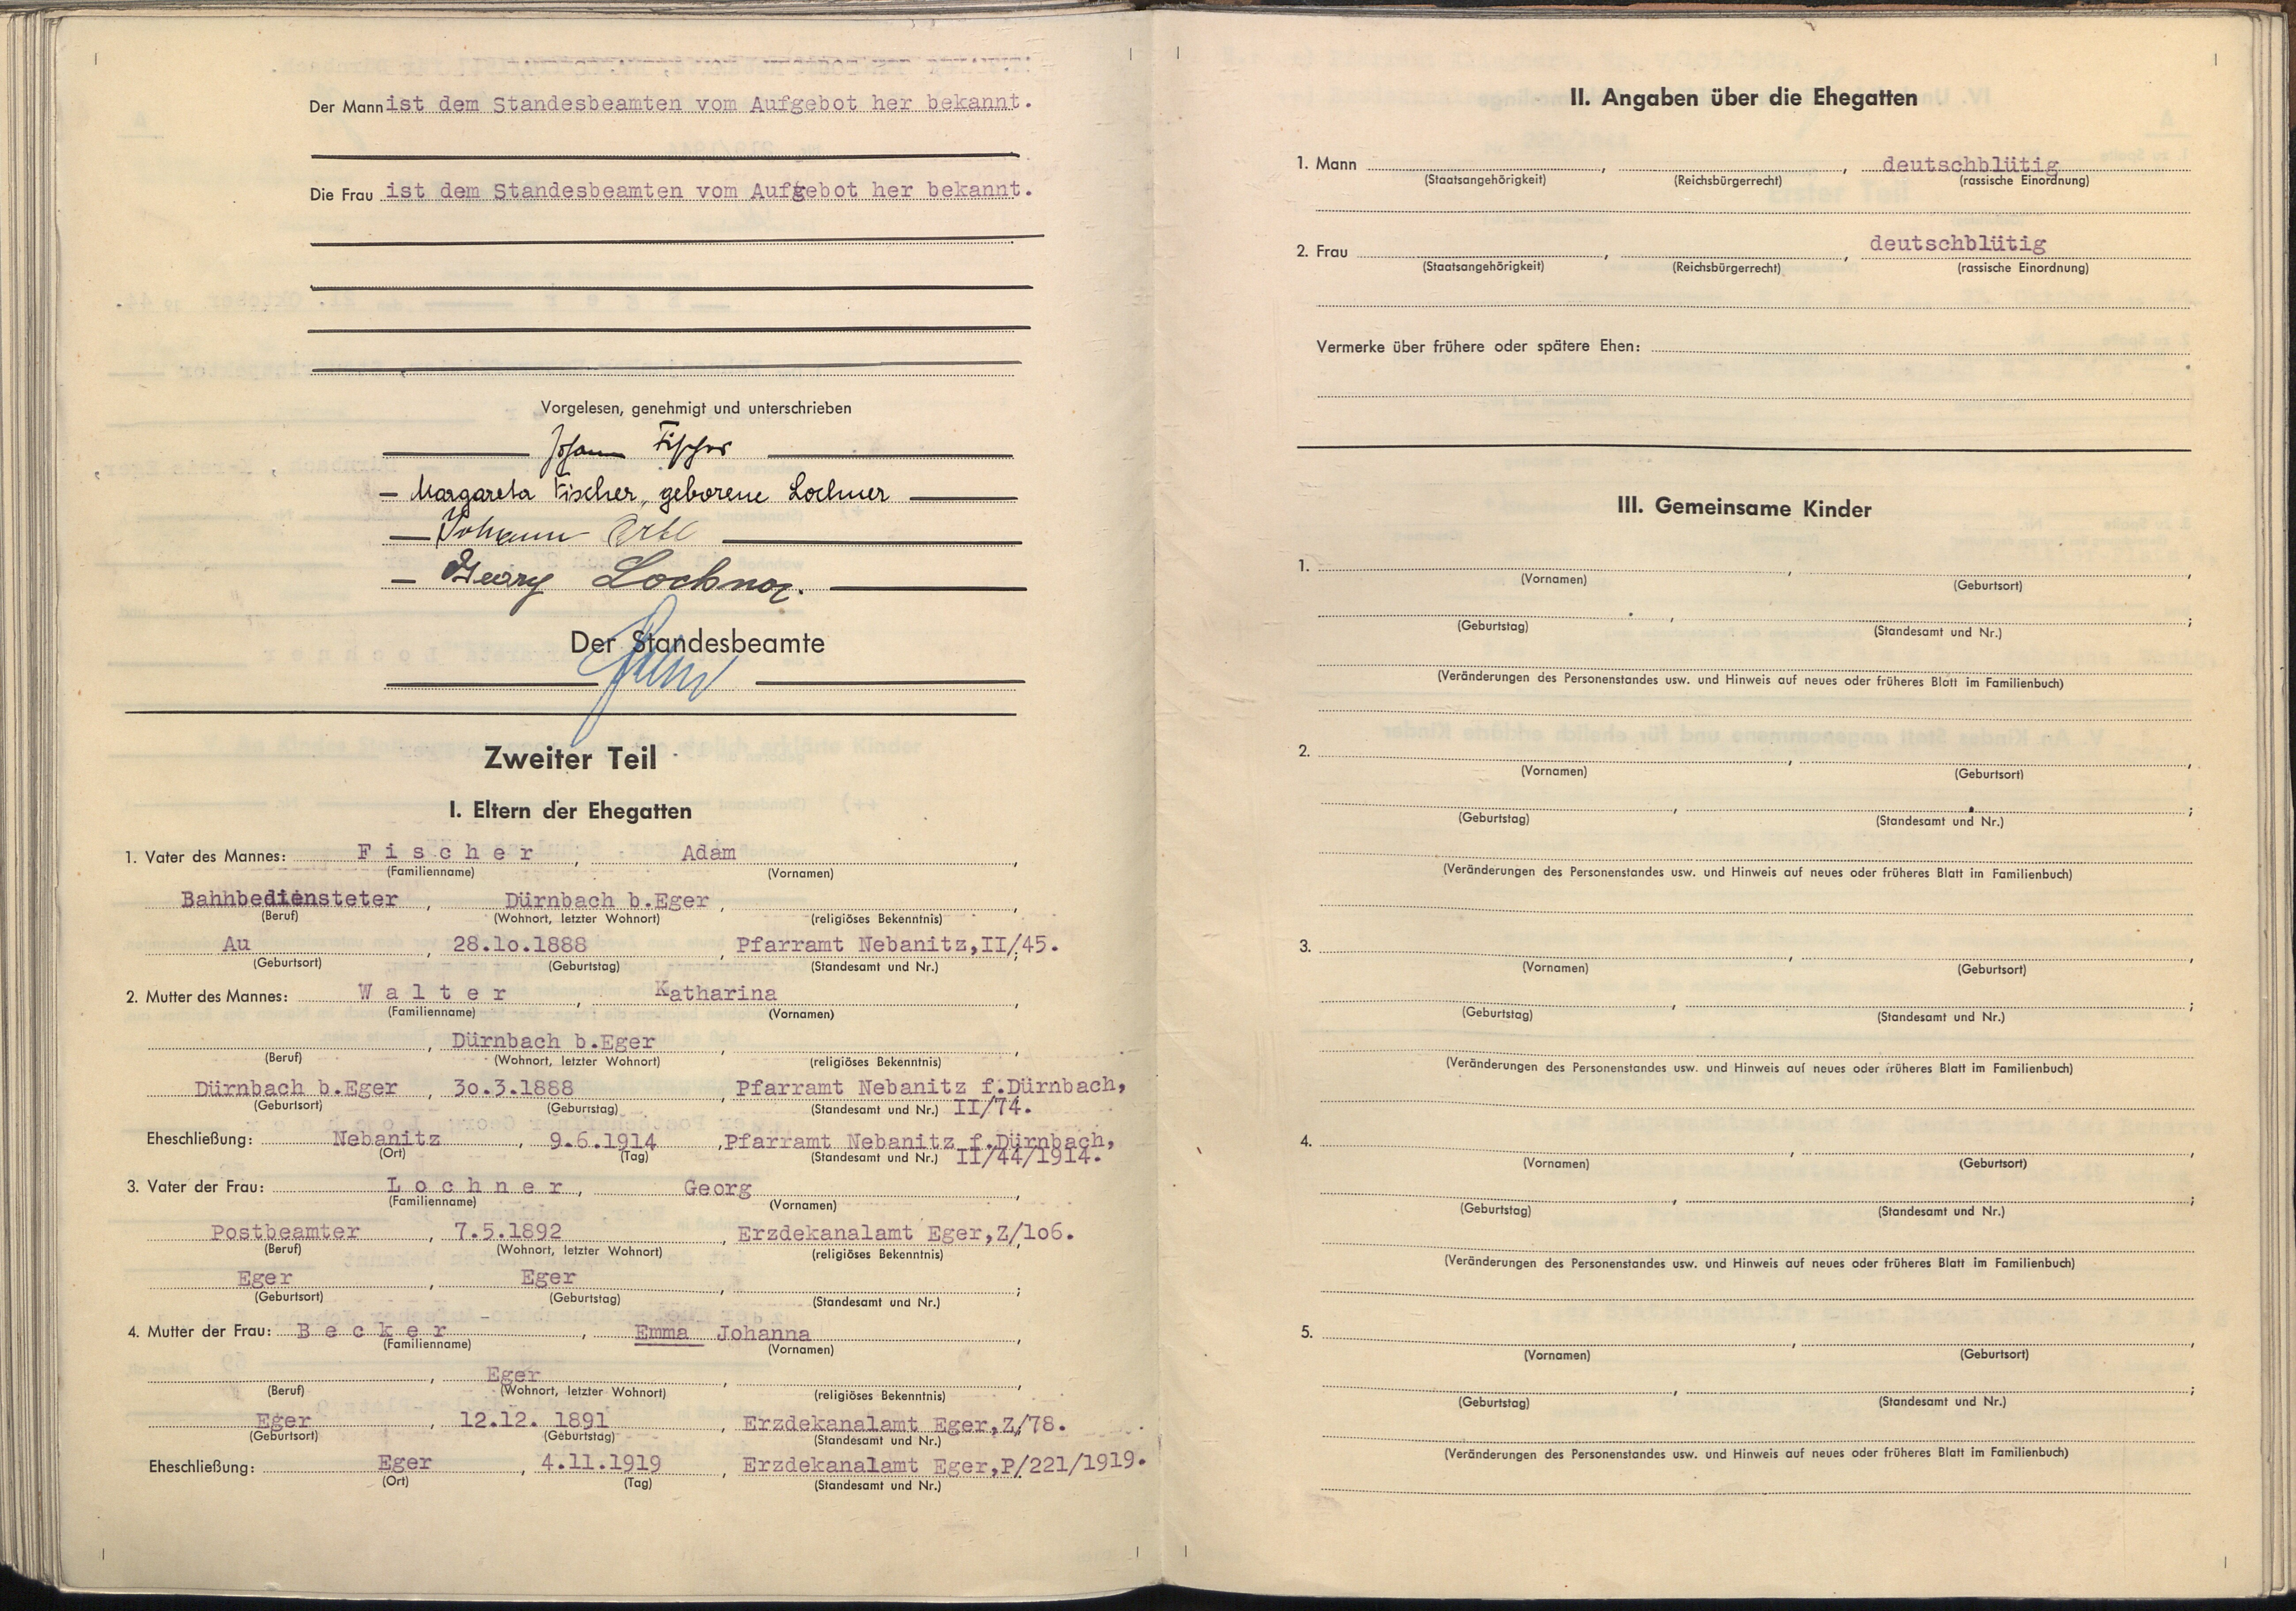 Der Mann ist dem Standesbeamten vom Aufgebot her bekannt.
Die Frau ist dem Standesbeamten vom Aufgebot her bekannt.
Vorgelesen, genehmigt und unterschrieben
Johann Fischer
Margareta Fischer, geborene Lochner
Johann
Georg Lochner.
Der Standesbeamte
Zweiter Teil
I. Eltern der Ehegatten
1. Vater des Mannes: Fischer, Adam,
(Familienname) (Vornamen)
Bahnbediensteter, Dürnbach b.Eger,
(Beruf) (Wohnort, letzter Wohnort) (religiöses Bekenntnis)
Au, 28.10.1888, Pfarramt Nebanitz,II/45.
(Geburtsort) (Geburtstag) (Standesamt und Nr.)
2. Mutter des Mannes: Walter, Katharina,
(Familienname) (Vornamen)
, Dürnbach b.Eger,
(Beruf) (Wohnort, letzter Wohnort) (religiöses Bekenntnis)
Dürnbach b.Eger, 30.3.1888, Pfarramt Nebanitz f.Dürnbach,
(Geburtsort) (Geburtstag) (Standesamt und Nr.) II/74.
Eheschließung: Nebanitz, 9.6.1914, Pfarramt Nebanitz f.Dürnbach,
(Ort) (Tag) (Standesamt und Nr.) II/44/1914.
3. Vater der Frau: Lochner, Georg,
(Familienname) (Vornamen)
Postbeamter, 7.5.1892, Erzdekanalamt Eger,Z/106.
(Beruf) (Wohnort, letzter Wohnort) (religiöses Bekenntnis)
Eger, Eger, ;
(Geburtsort) (Geburtstag) (Standesamt und Nr.)
4. Mutter der Frau: Becker, Emma Johanna,
(Familienname) (Vornamen)
, Eger,
(Beruf) (Wohnort, letzter Wohnort) (religiöses Bekenntnis)
Eger, 12.12. 1891, Erzdekanalamt Eger,Z/78.
(Geburtsort) (Geburtstag) (Standesamt und Nr.)
Eheschließung: Eger, 4.11.1919, Erzdekanalamt Eger,P/221/1919.
(Ort) (Tag) (Standesamt und Nr.)
II. Angaben über die Ehegatten
1. Mann , , deutschblütig
(Staatsangehörigkeit) (Reichsbürgerrecht) (rassische Einordnung)
2. Frau , , deutschblütig
(Staatsangehörigkeit) (Reichsbürgerrecht) (rassische Einordnung)
Vermerke über frühere oder spätere Ehen:
III. Gemeinsame Kinder
1. , ,
(Vornamen) (Geburtsort)
, ;
(Geburtstag) (Standesamt und Nr.)
(Veränderungen des Personenstandes usw. und Hinweis auf neues oder früheres Blatt im Familienbuch)
2. , ,
(Vornamen) (Geburtsort)
, ;
(Geburtstag) (Standesamt und Nr.)
(Veränderungen des Personenstandes usw. und Hinweis auf neues oder früheres Blatt im Familienbuch)
3. , ,
(Vornamen) (Geburtsort)
, ;
(Geburtstag) (Standesamt und Nr.)
(Veränderungen des Personenstandes usw. und Hinweis auf neues oder früheres Blatt im Familienbuch)
4. , ,
(Vornamen) (Geburtsort)
, ;
(Geburtstag) (Standesamt und Nr.)
(Veränderungen des Personenstandes usw. und Hinweis auf neues oder früheres Blatt im Familienbuch)
5. , ,
(Vornamen) (Geburtsort)
, ;
(Geburtstag) (Standesamt und Nr.)
(Veränderungen des Personenstandes usw. und Hinweis auf neues oder früheres Blatt im Familienbuch)